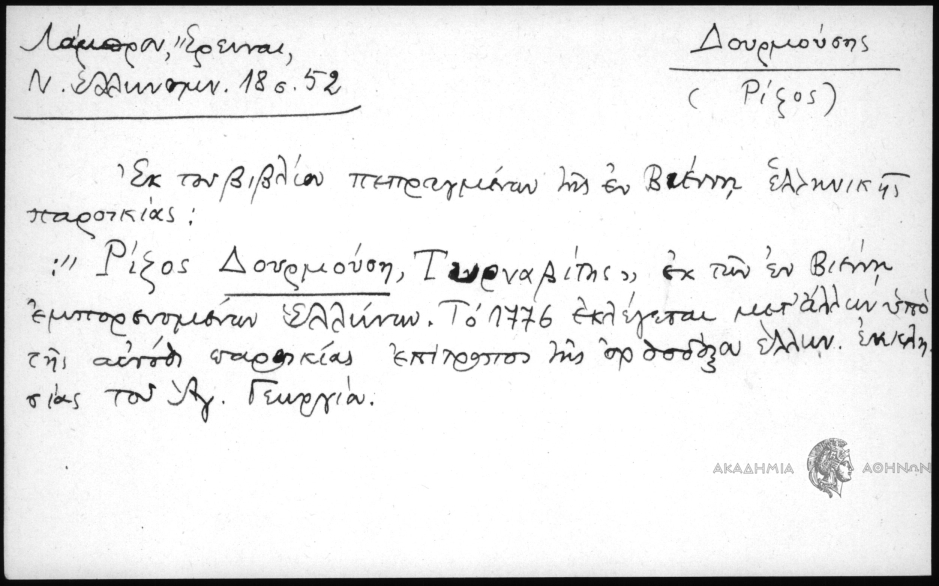 Λάμπρου, Ἔρευναι,
Ν. Ἑλληνομν. 18 σ. 52
Δουρμούσης
(Ρίζος)
Ἐκ τοῦ βιβλίου πεπραγμένων τῆς ἐν Βιέννῃ ἑλληνικῆς
παροικίας:
:" Ρίζος Δουρμούση, Τουρναβίτης», ἐκ τῶν ἐν Βιέννῃ
ἐμπορευομένων Ἑλλήνων. Τό 1776 ἐκλέγεται μετ' ἄλλων ὑπό
τῆς αὐτόθι παροικίας ἐπίτροπος τῆς ὀρθοδόξου ἑλλην. ἐκκλη
σίας τοῦ Ἁγ. Γεωργίου.
ΑΚΑΔΗΜΙΑ ΑΘΗΝΩΝ